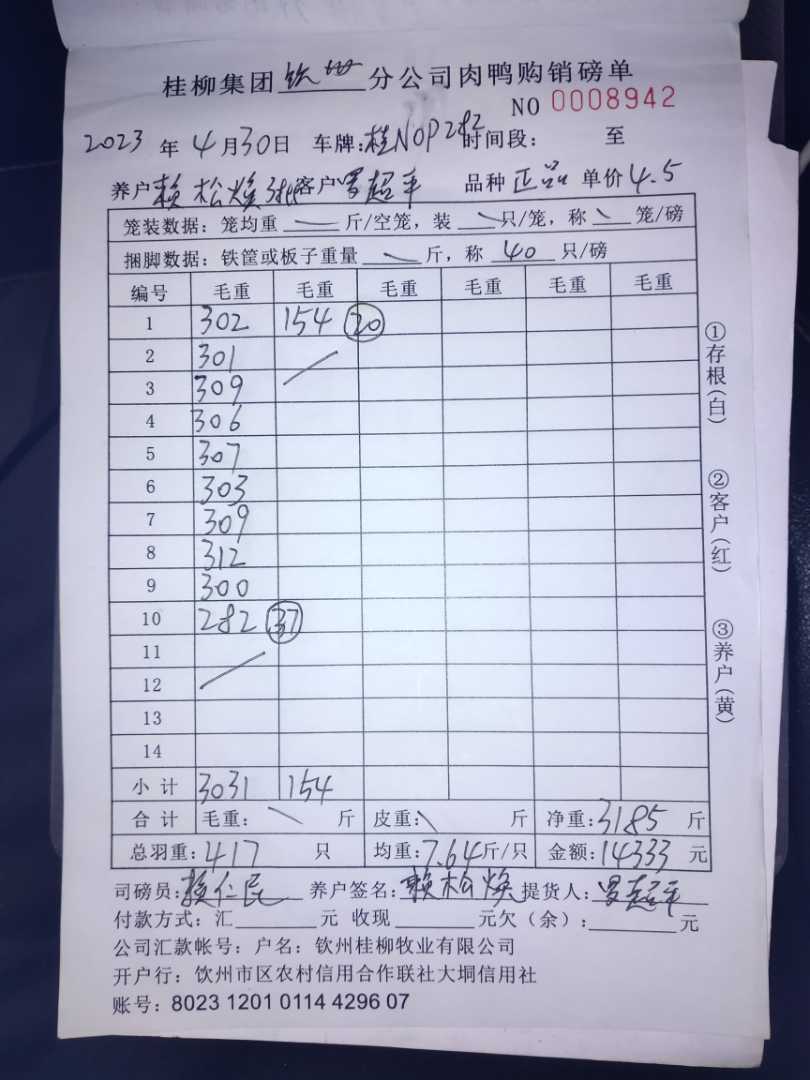 桂柳集团 钦州 分公司肉鸭购销磅单
NO 0008942
2023 年 4 月 30 日 车牌:桂N0P282 时间段: 至
养户 赖松焕 客户 罗超平 品种 正品 单价 4.5
笼装数据:笼均重 斤/空笼,装 只/笼,称 笼/磅
捆脚数据:铁筐或板子重量 斤,称 40 只/磅
编号 毛重 毛重 毛重 毛重 毛重 毛重
1 302 154 20
2 301
3 309
4 306
5 307
6 303
7 309
8 312
9 300
10 282 37
11
12
13
14
小计 3031 154
合计 毛重: 斤 皮重: 斤 净重:3185 斤
总羽重:417 只 均重:7.64斤/只 金额:14333 元
司磅员:赖仁民 养户签名:赖松焕 提货人:罗超平
付款方式:汇 元 收现 元欠(余): 元
公司汇款帐号:户名:钦州桂柳牧业有限公司
开户行:钦州市区农村信用合作联社大垌信用社
账号:8023 1201 0114 4296 07
①存根(白)
②客户(红)
③养户(黄)